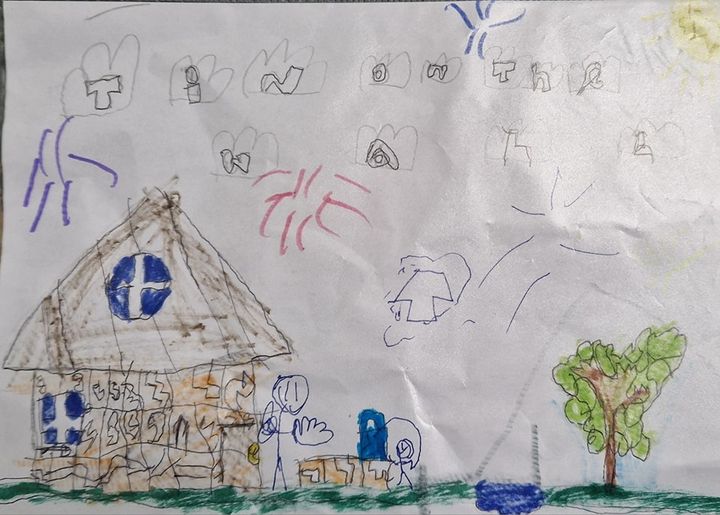 TiN on The
wALL